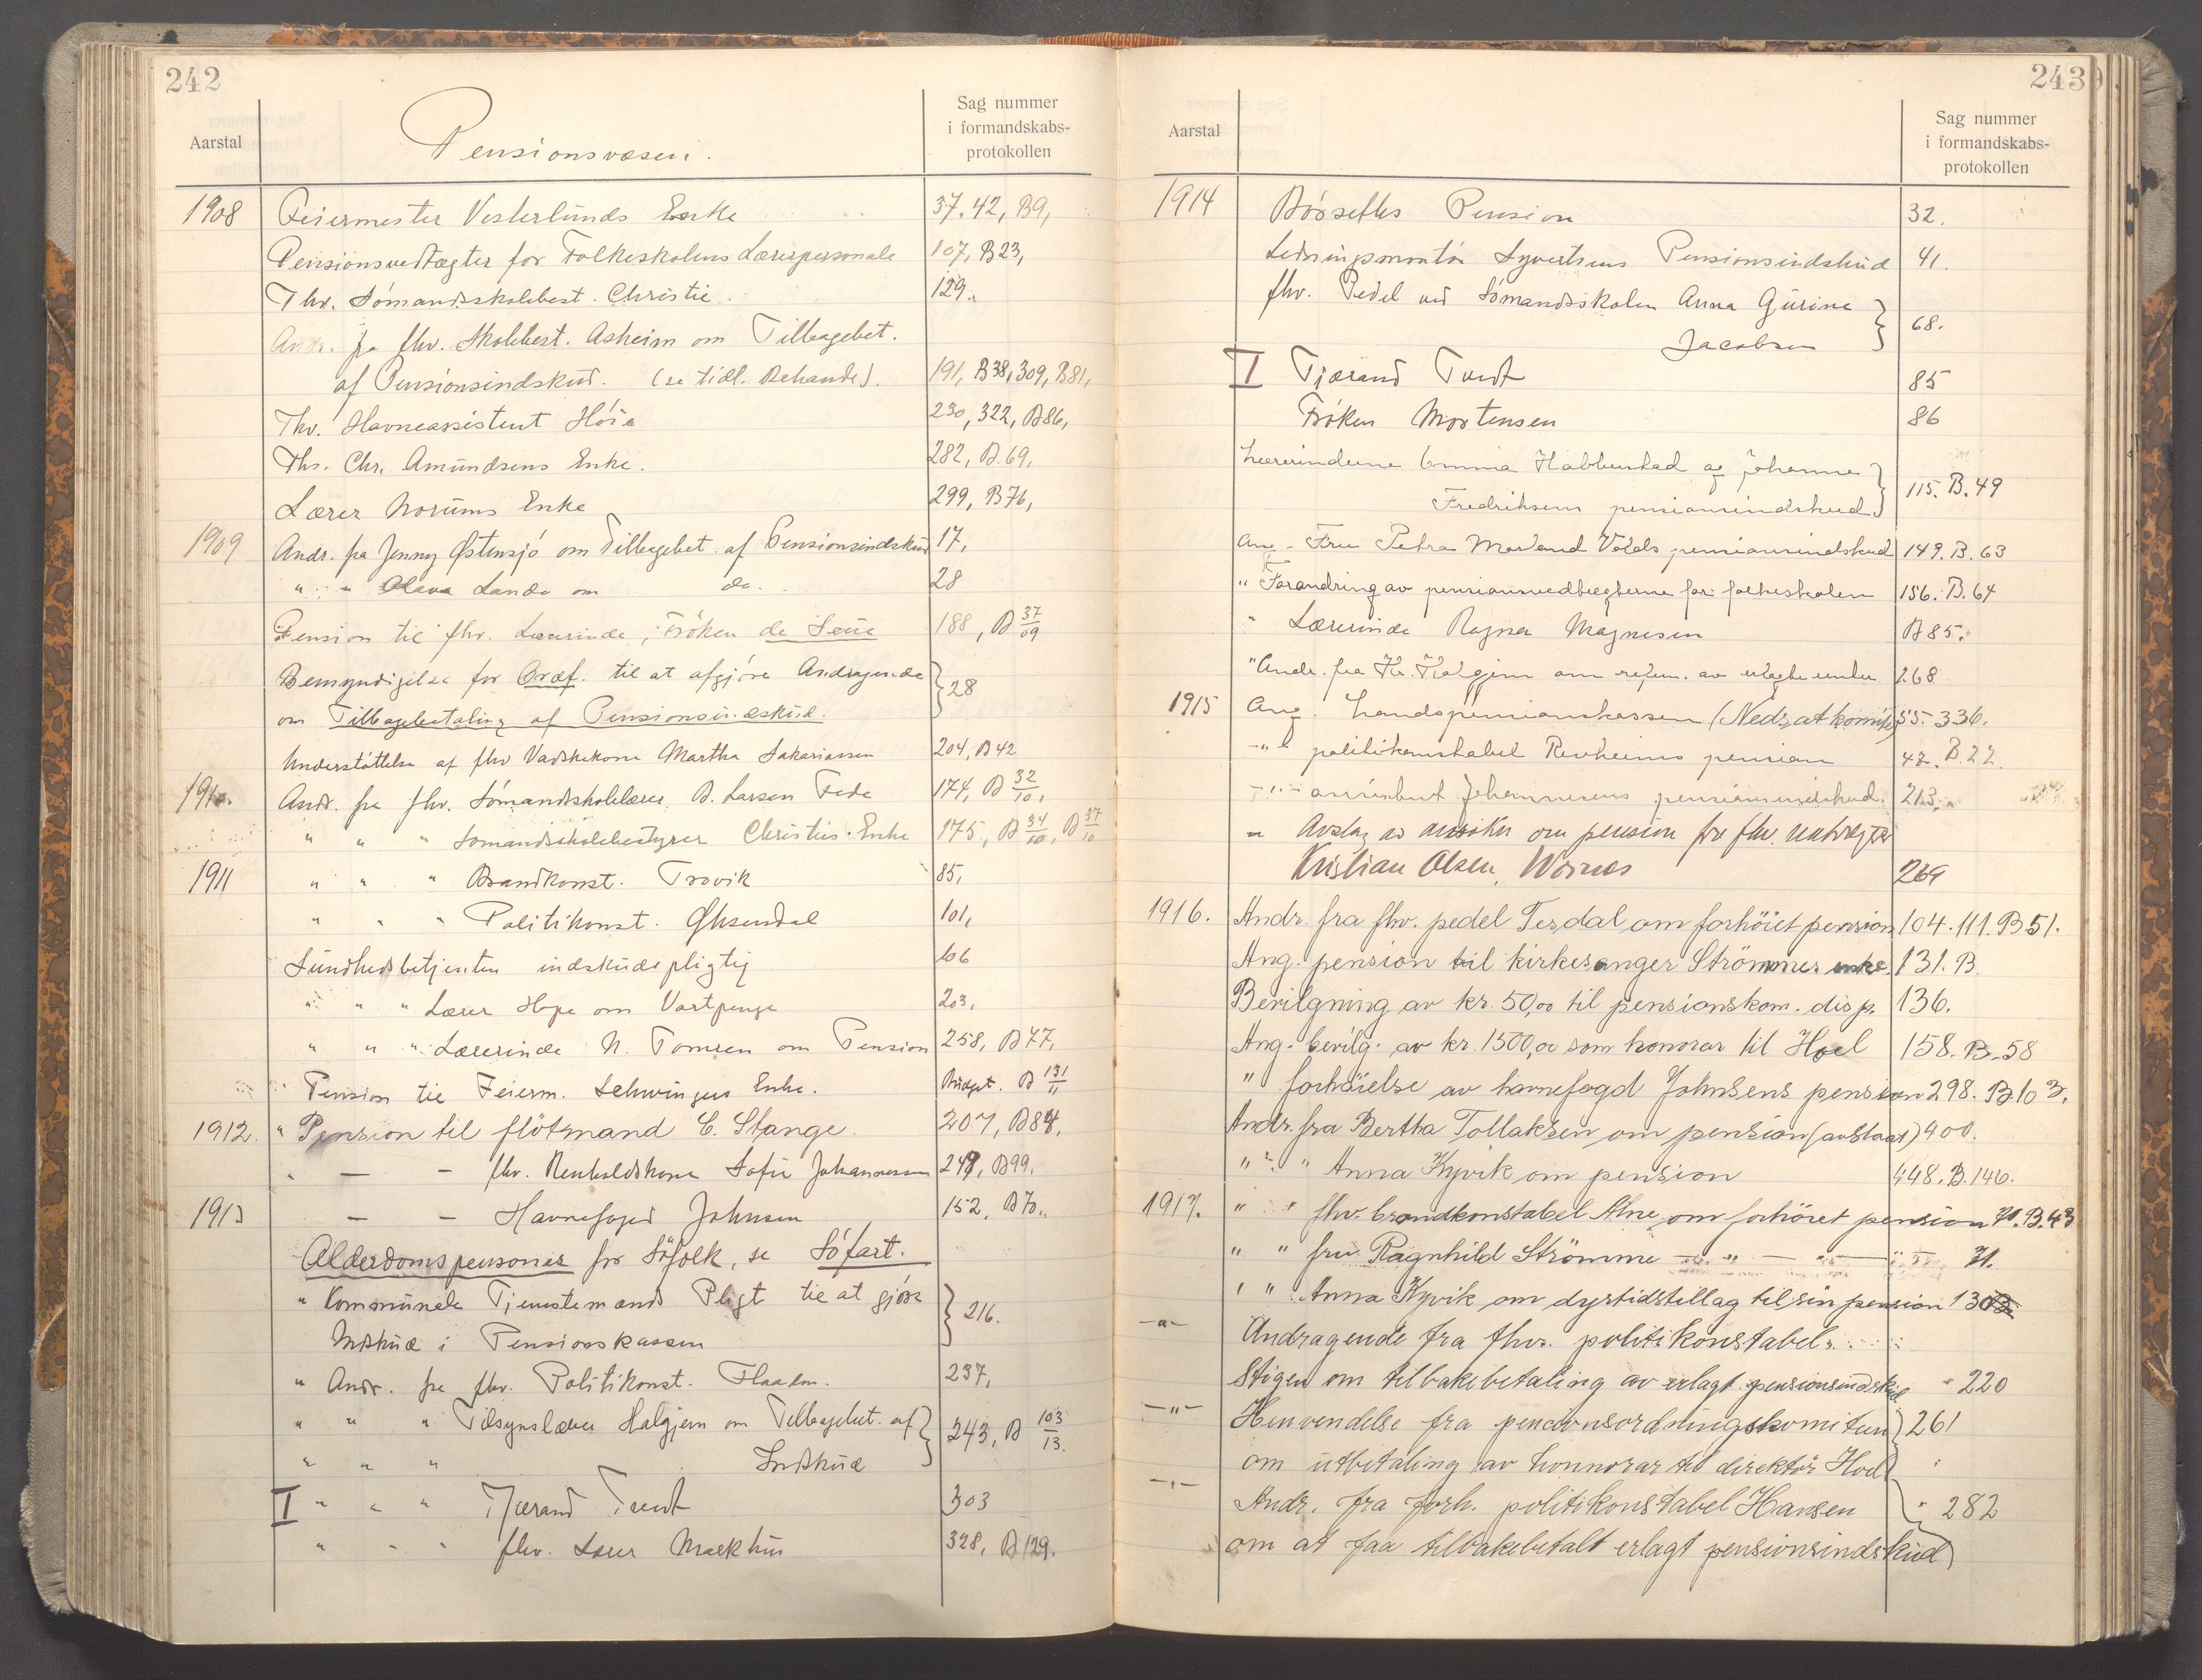 242
Aarstal
Pensionsvæsen.
Sag nummer
i formandskabs-
protokollen
1908 Feiermester Vesterlunds Enke 37. 42, B9,
Pensionsvedtægter for Folkeskolens Lærerpersonale 107, B23,
Fhv. Sømandsskolebest. Christie 129.
Andr. fra fhv. Skolebest. Asheim om Tilbagebet.
af Pensionsindskud. (se tidl. Behandl). 191, B38, 309, B81,
Fhv. Havneassistent Höie 230, 322, B86,
Ths. Chr. Amundsens Enke. 282, B.69,
Lærer Norums Enke 299, B76,
1909 Andr. fra Jenny Østensjö om Tilbagebet. af Pensionsindskud 17,
" " Olava Lande om do. 28
Pension til fhv. Lærerinde, Fröken de Seue 188, B 37/09
Bemyndigelse for Ordf. til at afgjöre Andragende
om Tilbagebetaling af Pensionsindskud. } 28
Understöttelse af fhv Vadskekone Martha Sakariassen 204, B42
1910. Andr. fra fhv. Sömandsskolelærer B. Larsen Fede 174, B 32/10,
" " " Sömandsskolebestyrer Christies Enke 175, B 34/10, B 37/10
1911 " " " Brandkonst. Trovik 85,
" " " Politikonst. Øksendal 101,
Sundhedsbetjenten indskudspligtig 106
" " " Lærer Hope om Vartpenge 203,
" " " Lærerinde N. Tomsen om Pension 258, B77,
" Pension til Feierm. Schwingers Enke. Budget. B 131/11
1912. " Pension til flötmand C. Stange. 207, B84,
" — — fhv. Renholdskone Sofie Johannessen 249, B99,
1913 — — Havnefoged Johnsen 152, B70,
Alderdomspensioner for Söfolk, se Söfart.
" Kommunale Tjenestemænds Pligt til at gjöre
Indskud i Pensionskassen } 216.
" Andr. fra fhv. Politikonst. Flaaten. 237,
" " " Tilsynslærer Halgjem om Tilbagebet. af
" " " Indskud } 243, B 103/13.
I " " " Tjærand Tvedt 303
" " " fhv. Lærer Mækhus 328, B129.
243
Aarstal
Sag nummer
i formandskabs-
protokollen
1914 Börseths Pension 32.
Ledningsmontör Syvertsens Pensionsindskud 41.
fhv. Pedel ved Sömandsskolen Anna Gurine
Jacobsen } 68.
I Tjærand Tvedt 85
Fröken Mortensen 86
Lærerinderne Emma Habberstad og Johanne
Fredriksens pensionsindskud } 115. B.49
Ang. Fru Petra Morland Volds pensionsindskud 149. B. 63
" Forandring av pensionsvedtægterne for folkeskolen 156. B.64
" Lærerinde Ragna Magnesen B85.
" Andr. fra Hr. Halgjem om refun. av erlagte 268
1915 Ang. Landspensionskassen (Nedsat komite) 55. 336.
—"— politikonstabel Revheims pension 42. B.22.
—"— assistent Johannesens pensionsindskud. 213.
" Avslag av ansökn om pension fra fhv. natvægter
Kristian Olsen, 269
1916. Andr. fra fhv. pedel Tesdal om forhöiet pension 104. 111. B51.
Ang. pension til kirkesanger Strömmes enke. 131. B.
Bevilgning av kr. 50,00 til pensionskom. disp. 136.
Ang. bevilg. av kr. 1500,00 som honorar til Hoel 158. B.58
" forhöielse av havnefogd Johnsens pension 298. B.103.
Andr. fra Bertha Tollaksen om pension (avslaat) 400.
" " Anna Kyvik om pension 448. B.146.
1917. " " fhv. brandkonstabel Alne om forhöiet pension 70. B.43
" " fru Ragnhild Strömme — " — " — 71.
" " Anna Kyvik om dyrtidstillag til sin pension 130
—"— Andragende fra fhv. politikonstabel
Stigen om tilbakebetaling av erlagt pensionsindskud 220
—"— Henvendelse fra pensionsordningskomiteen
om utbetaling av honnorar til direktör Hoel } 261
—"— Andr. fra forh. politikonstabel Hansen
om at faa tilbakebetalt erlagt pensionsindskud } 282